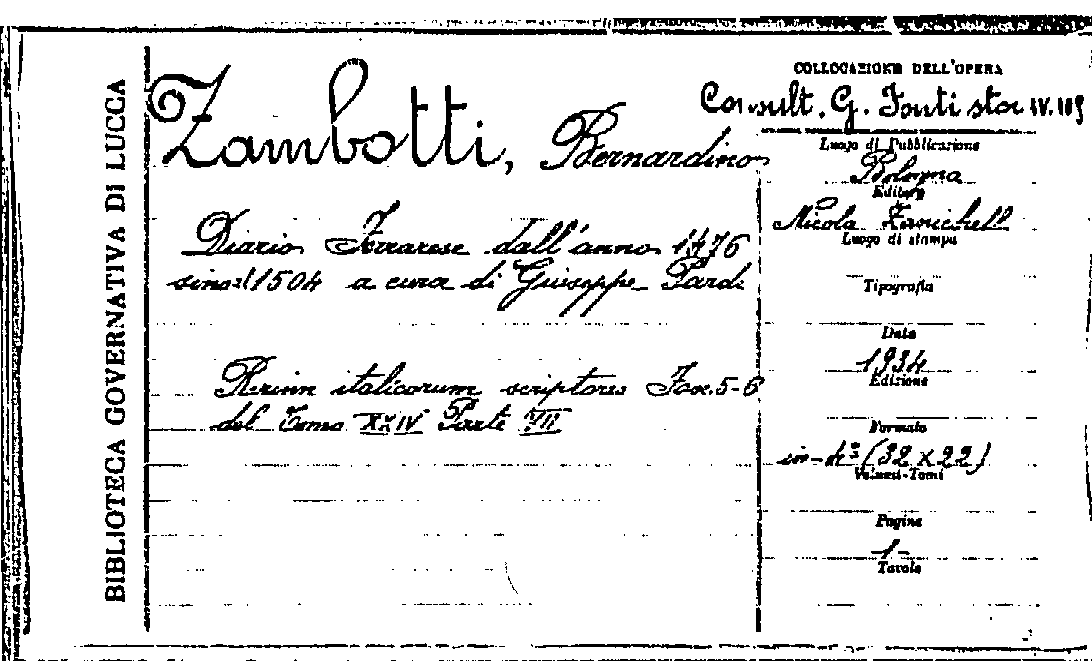 BIBLIOTECA GOVERNATIVA DI LUCCA
Zambotti, Bernardino
Diario Ferrarese dall'anno 1476
sino al 1504 a cura di Giuseppe Pardi
Rerum italicarum scriptores Fasc. 5-6
del Tomo XXIV Parte VII
COLLOCAZIONE DELL'OPERA
Consult. G. Fonti stor IV. 109
Luogo di Pubblicazione
Bologna
Editore
Nicola Zanichelli
Luogo di stampa
Tipografia
Data
1934
Edizione
Formato
in-4º (32 x 22)
Volumi-Tomi
Pagine
1
Tavole